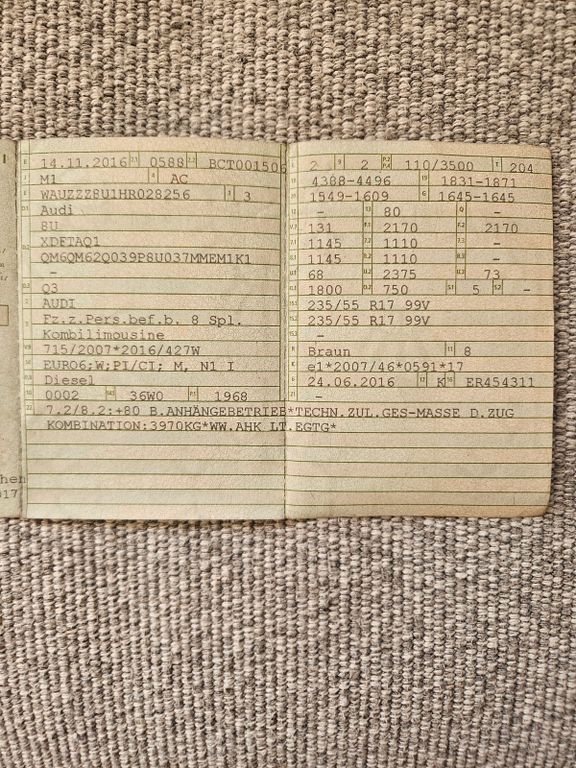 14.11.2016 0588 BCT001506
M1 AC
WAUZZZ8U1HR028256 3
Audi
8U
XDFTAQ1
QM6QM62Q039P8U037MMEM1K1
-
Q3
AUDI
Fz.z.Pers.bef.b. 8 Spl.
Kombilimousine
715/2007*2016/427W
EURO6;W;PI/CI; M, N1 I
Diesel
0002 36W0 1968
7.2/8.2:+80 B.ANHÄNGEBETRIEB*TECHN.ZUL.GES-MASSE D.ZUG
KOMBINATION:3970KG*WW.AHK LT.EGTG*
2 9 2 110/3500 204
4388-4496 1831-1871
1549-1609 1645-1645
- 80 -
131 2170 2170
1145 1110 -
1145 1110 -
68 2375 73
1800 750 5 -
235/55 R17 99V
235/55 R17 99V
-
Braun 8
e1*2007/46*0591*17
24.06.2016 K ER454311
-
hen
017